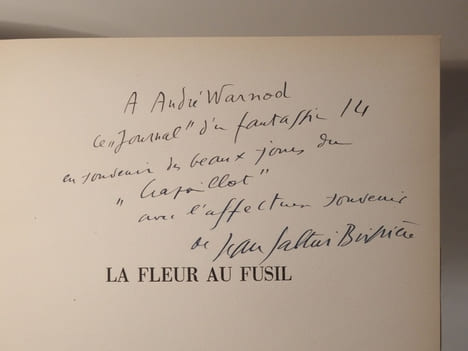 A André Warnod
ce „Journal" d'un fantassin 14
en souvenir des beaux jours du
„Crapouillot"
avec l'affectueux souvenir
de Jean Galtier Boissière
LA FLEUR AU FUSIL